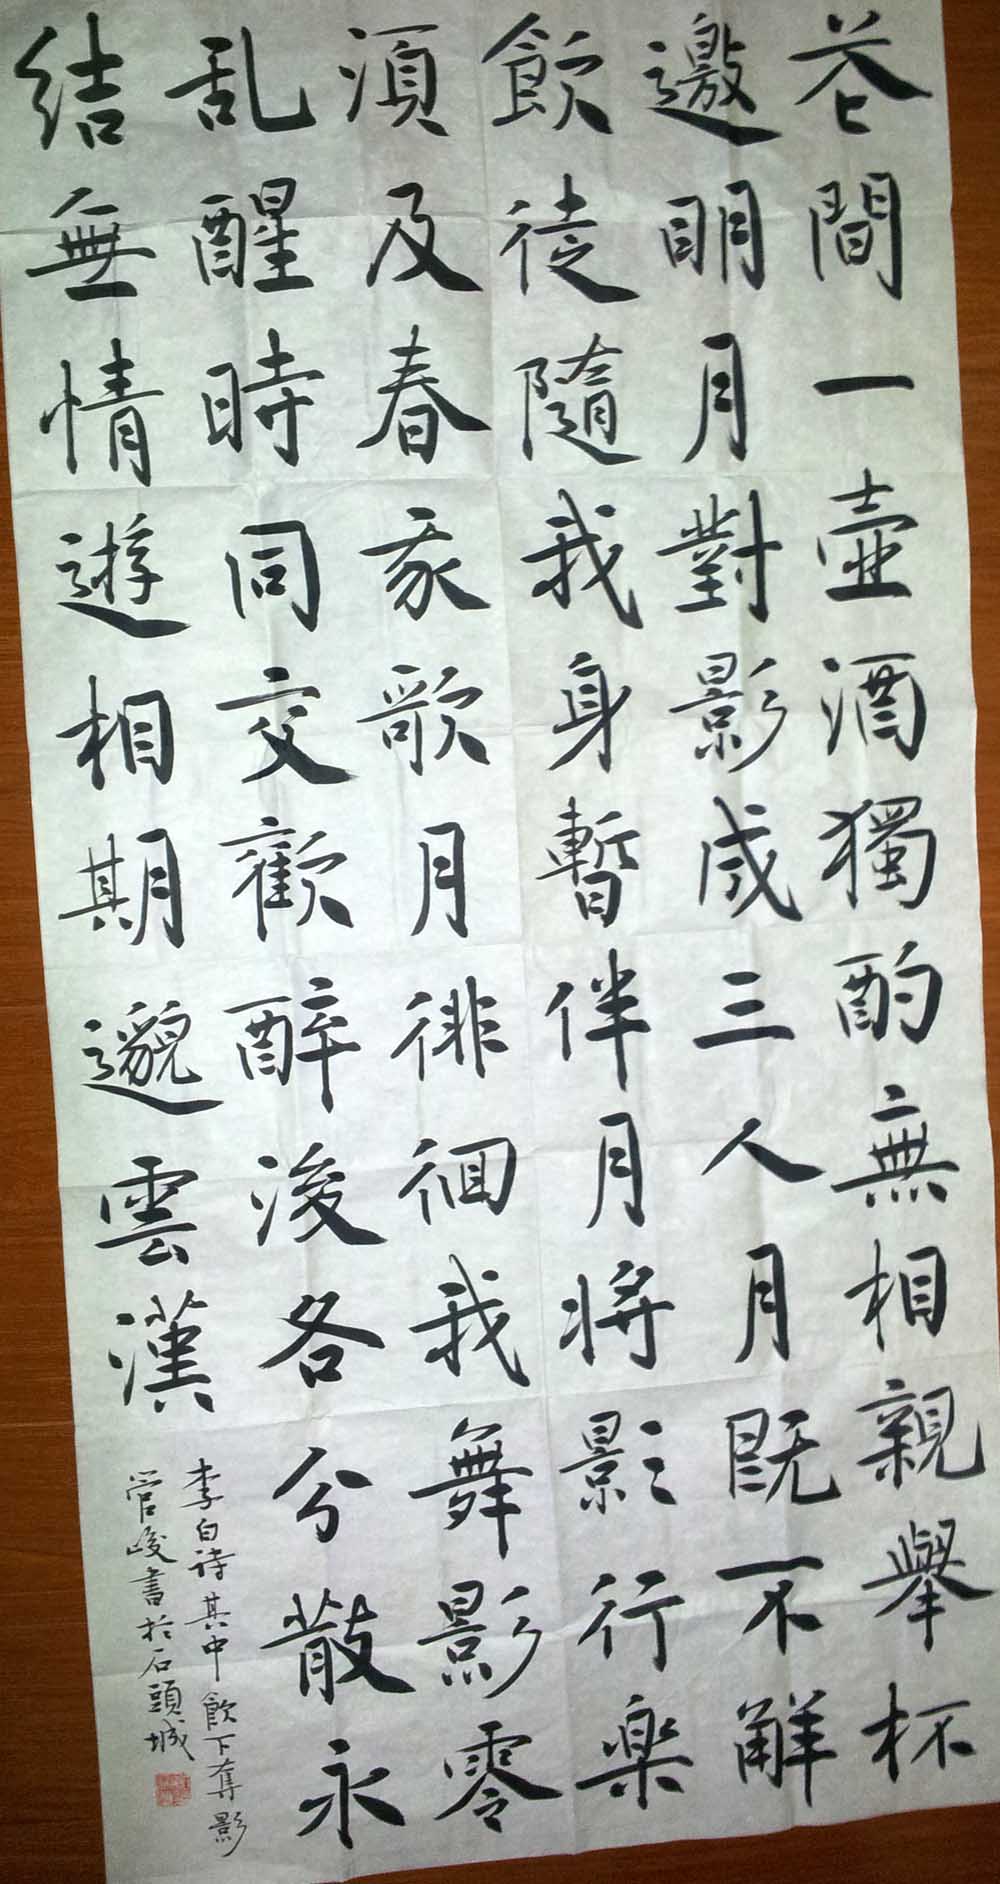 花間一壺酒獨酌無相親舉杯
邀明月對影成三人月既不解
飲徒隨我身暫伴月將影行樂
須及春我歌月徘徊我舞影零
乱醒時同交歡醉後各分散永
結無情遊相期邈雲漢
李白诗其中飲下奪影
管峻書於石頭城